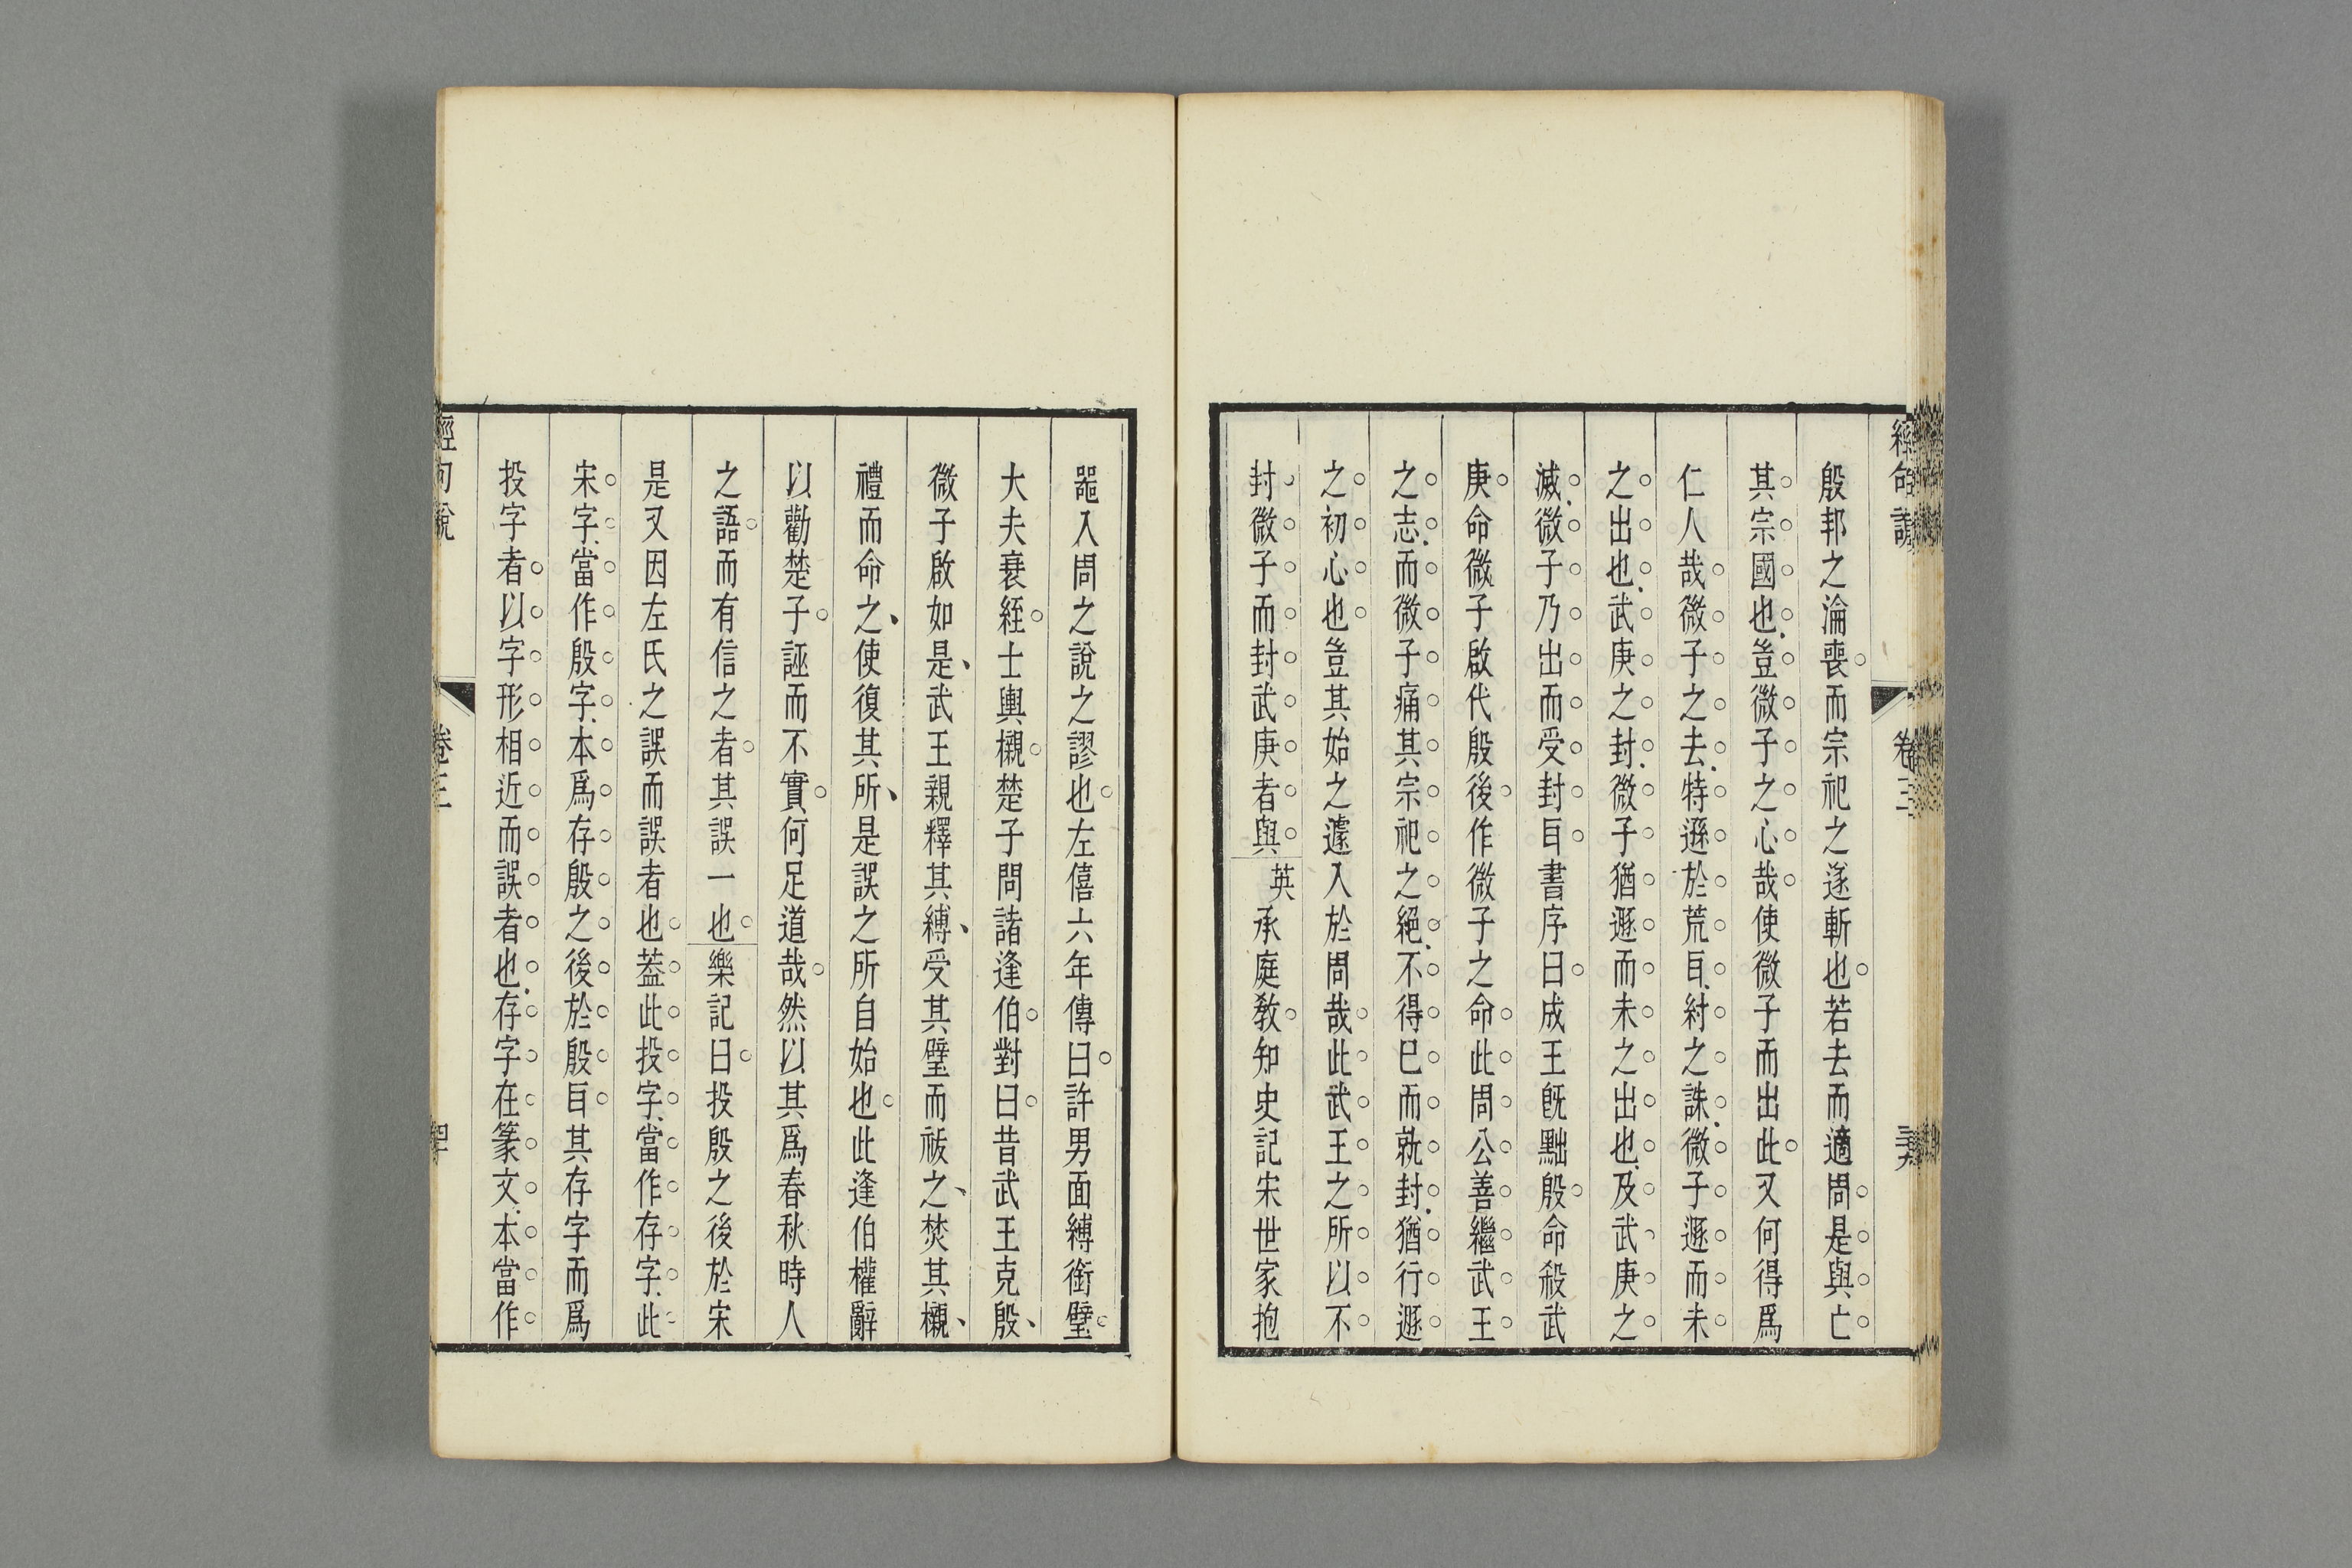 經句說
卷三
殷邦之淪喪而宗祀之遂斬也若去而適周是與亡
其宗國也豈微子之心哉使微子而出此又何得爲
仁人哉微子之去特遯於荒耳紂之誅微子遯而未
之出也武庚之封微子猶遯而未之出也及武庚之
滅微子乃出而受封耳書序曰成王旣黜殷命殺武
庚命微子啟代殷後作微子之命此周公善繼武王
之志而微子痛其宗祀之絕不得已而就封猶行遯
之初心也豈其始之遽入於周哉此武王之所以不
封微子而封武庚者與英承庭敎知史記宋世家抱
噐入周之說之謬也左僖六年傳曰許男面縛銜璧
大夫衰絰士輿櫬楚子問諸逢伯對曰昔武王克殷
微子啟如是武王親釋其縛受其璧而祓之焚其櫬
禮而命之使復其所是誤之所自始也此逢伯權辭
以勸楚子誣而不實何足道哉然以其爲春秋時人
之語而有信之者其誤一也樂記曰投殷之後於宋
是又因左氏之誤而誤者也葢此投字當作存字此
宋字當作殷字本爲存殷之後於殷耳其存字而爲
投字者以字形相近而誤者也存字在篆文本當作
經句說
卷三